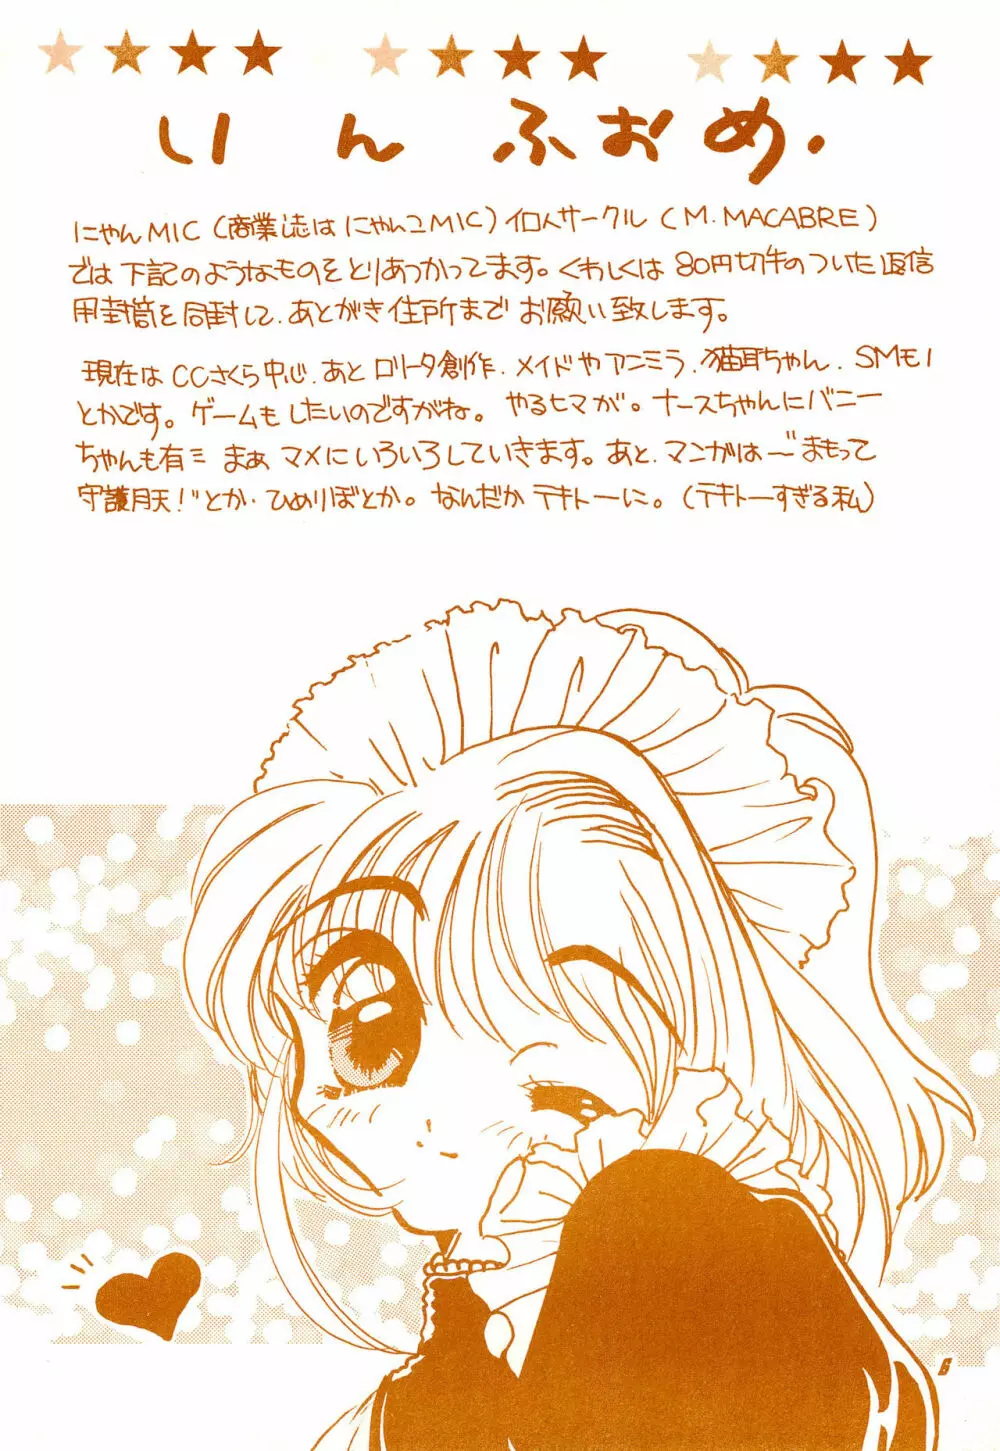 いんふぉめ.
にゃんMIC(商業誌はにゃんこMIC)個人サークル(M.MACABRE)
では下記のようなものをとりあつかってます。くわしくは80円切手のついた返信
用封筒を同封して、あとがき住所までお願い致します。
現在はCCさくら中心、あとロリータ創作、メイドやアンミラ、猫耳ちゃん、SMEI
とかです。ゲームもしたいのですがね。やるヒマが。ナースちゃんにバニー
ちゃんも有ミ まぁマメにいろいろしていきます。あと、マンガは〜"まもって
守護月天!"とか・ひめりぼとか。なんだかテキトーに。(テキトーすぎる私)
6